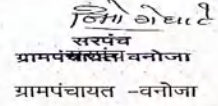 सरपंच
ग्रामपंचायत वनोजा
ग्रामपंचायत -वनोजा